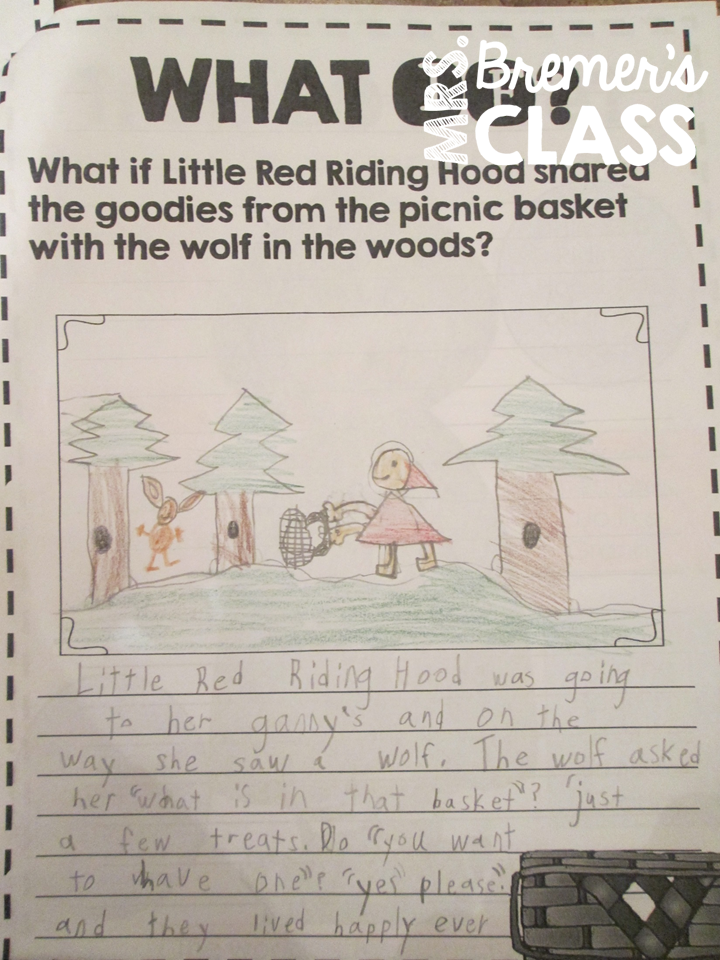 WHAT
MRS. Bremer's
CLASS
What if Little Red Riding Hood shared
the goodies from the picnic basket
with the wolf in the woods?
Little Red Riding Hood was going
to her ganny's and on the
way she saw a wolf. The wolf asked
her "what is in that basket"? "just
a few treats. Do "you want
to have one"? "yes" please".
and they lived happly ever